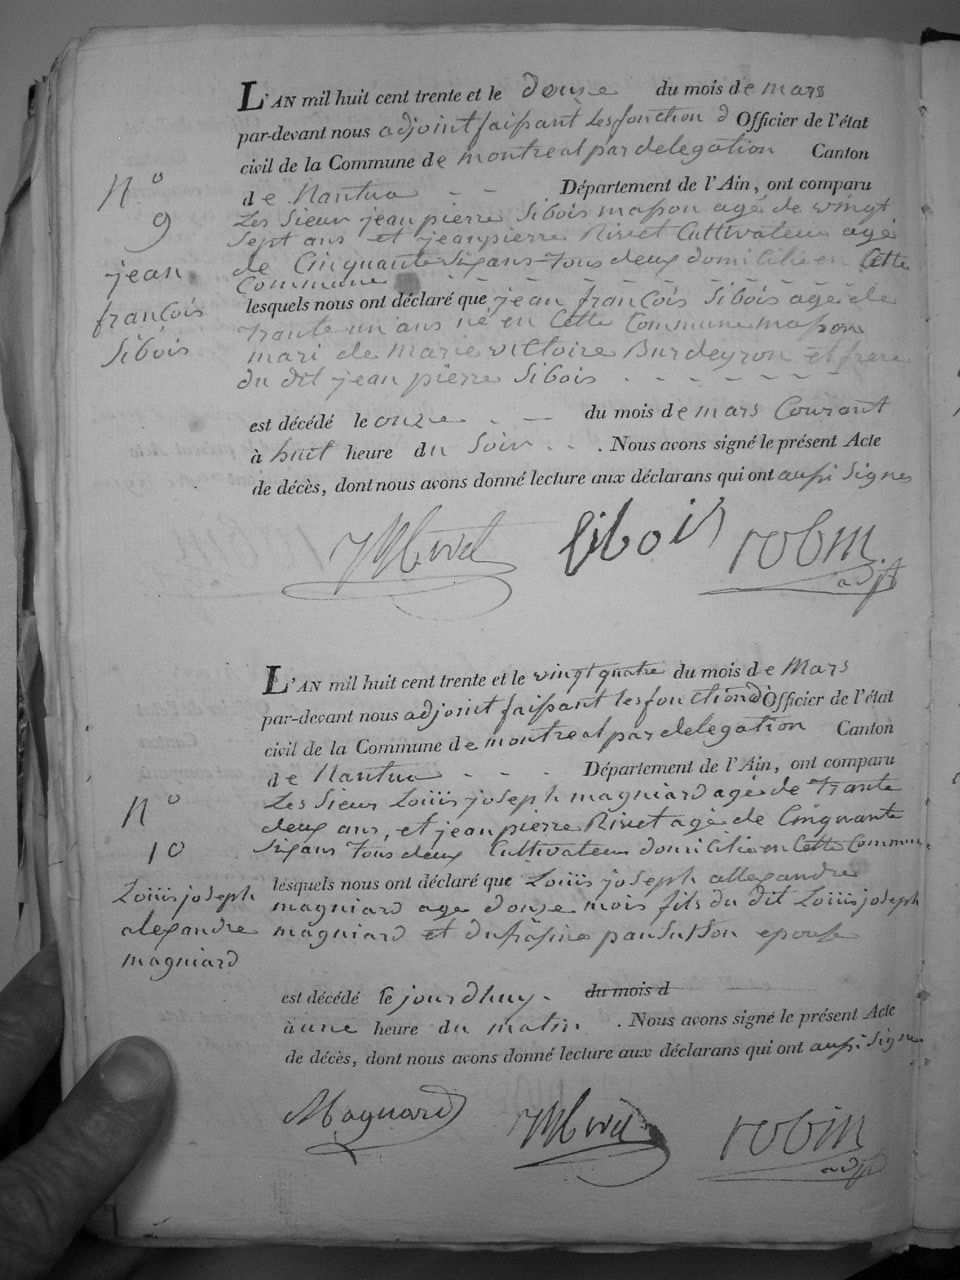 L'AN mil huit cent trente et le douse du mois de mars
par-devant nous adjoint faissant les fonction d Officier de l'état
civil de la Commune de montreal par delegation Canton
de Nantua - - Département de l'Ain, ont comparu
N° 9
jean
françois
Sibois
Les Sieur jean pierre Sibois masson agé de vingt
Sept ans et jean pierre Rivet Cultivateur agé
de Cinquante Six ans tous deux domicilié en Cette
Commune
lesquels nous ont déclaré que jean françois Sibois agée de
trante un ans né en Cette Commune masson
mari de marie victoire Burdeyron et frere
du dit jean pierre Sibois
est décédé le onze du mois de mars Courant
à huit heure du Soir . Nous avons signé le présent Acte
de décès, dont nous avons donné lecture aux déclarans qui ont aussi Signes
Sibois robin
adjt
L'AN mil huit cent trente et le vingt quatre du mois de Mars
par-devant nous adjoint faissant les fonction d Officier de l'état
civil de la Commune de montreal par delegation Canton
de Nantua - - - Département de l'Ain, ont comparu
N°
10
Loüis joseph
alexandre
magniard
Les Sieur Loüis joseph magniard agé de trante
deux ans, et jean pierre Rivet agé de Cinquante
Six ans tous deux Cultivateur domicilié en Cette Commune
lesquels nous ont déclaré que Loüis joseph allexandre
magniard age douse mois fils du dit Loüis joseph
magniard et epouse
est décédé le jourdhuy. du mois d
à une heure du matin . Nous avons signé le présent Acte
de décès, dont nous avons donné lecture aux déclarans qui ont aussi Signe
Magniard robin
adjt